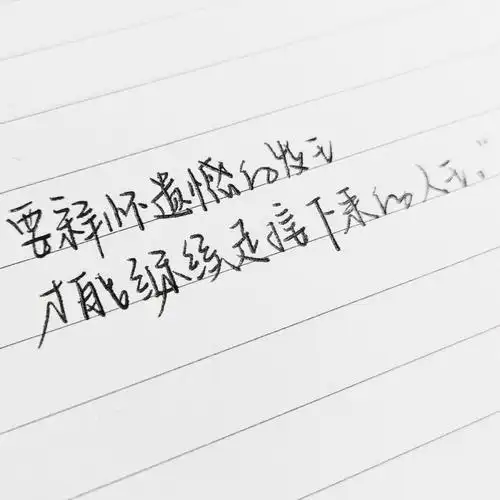 要释怀遗憾的发生
才能继续迎接下来的人生。"